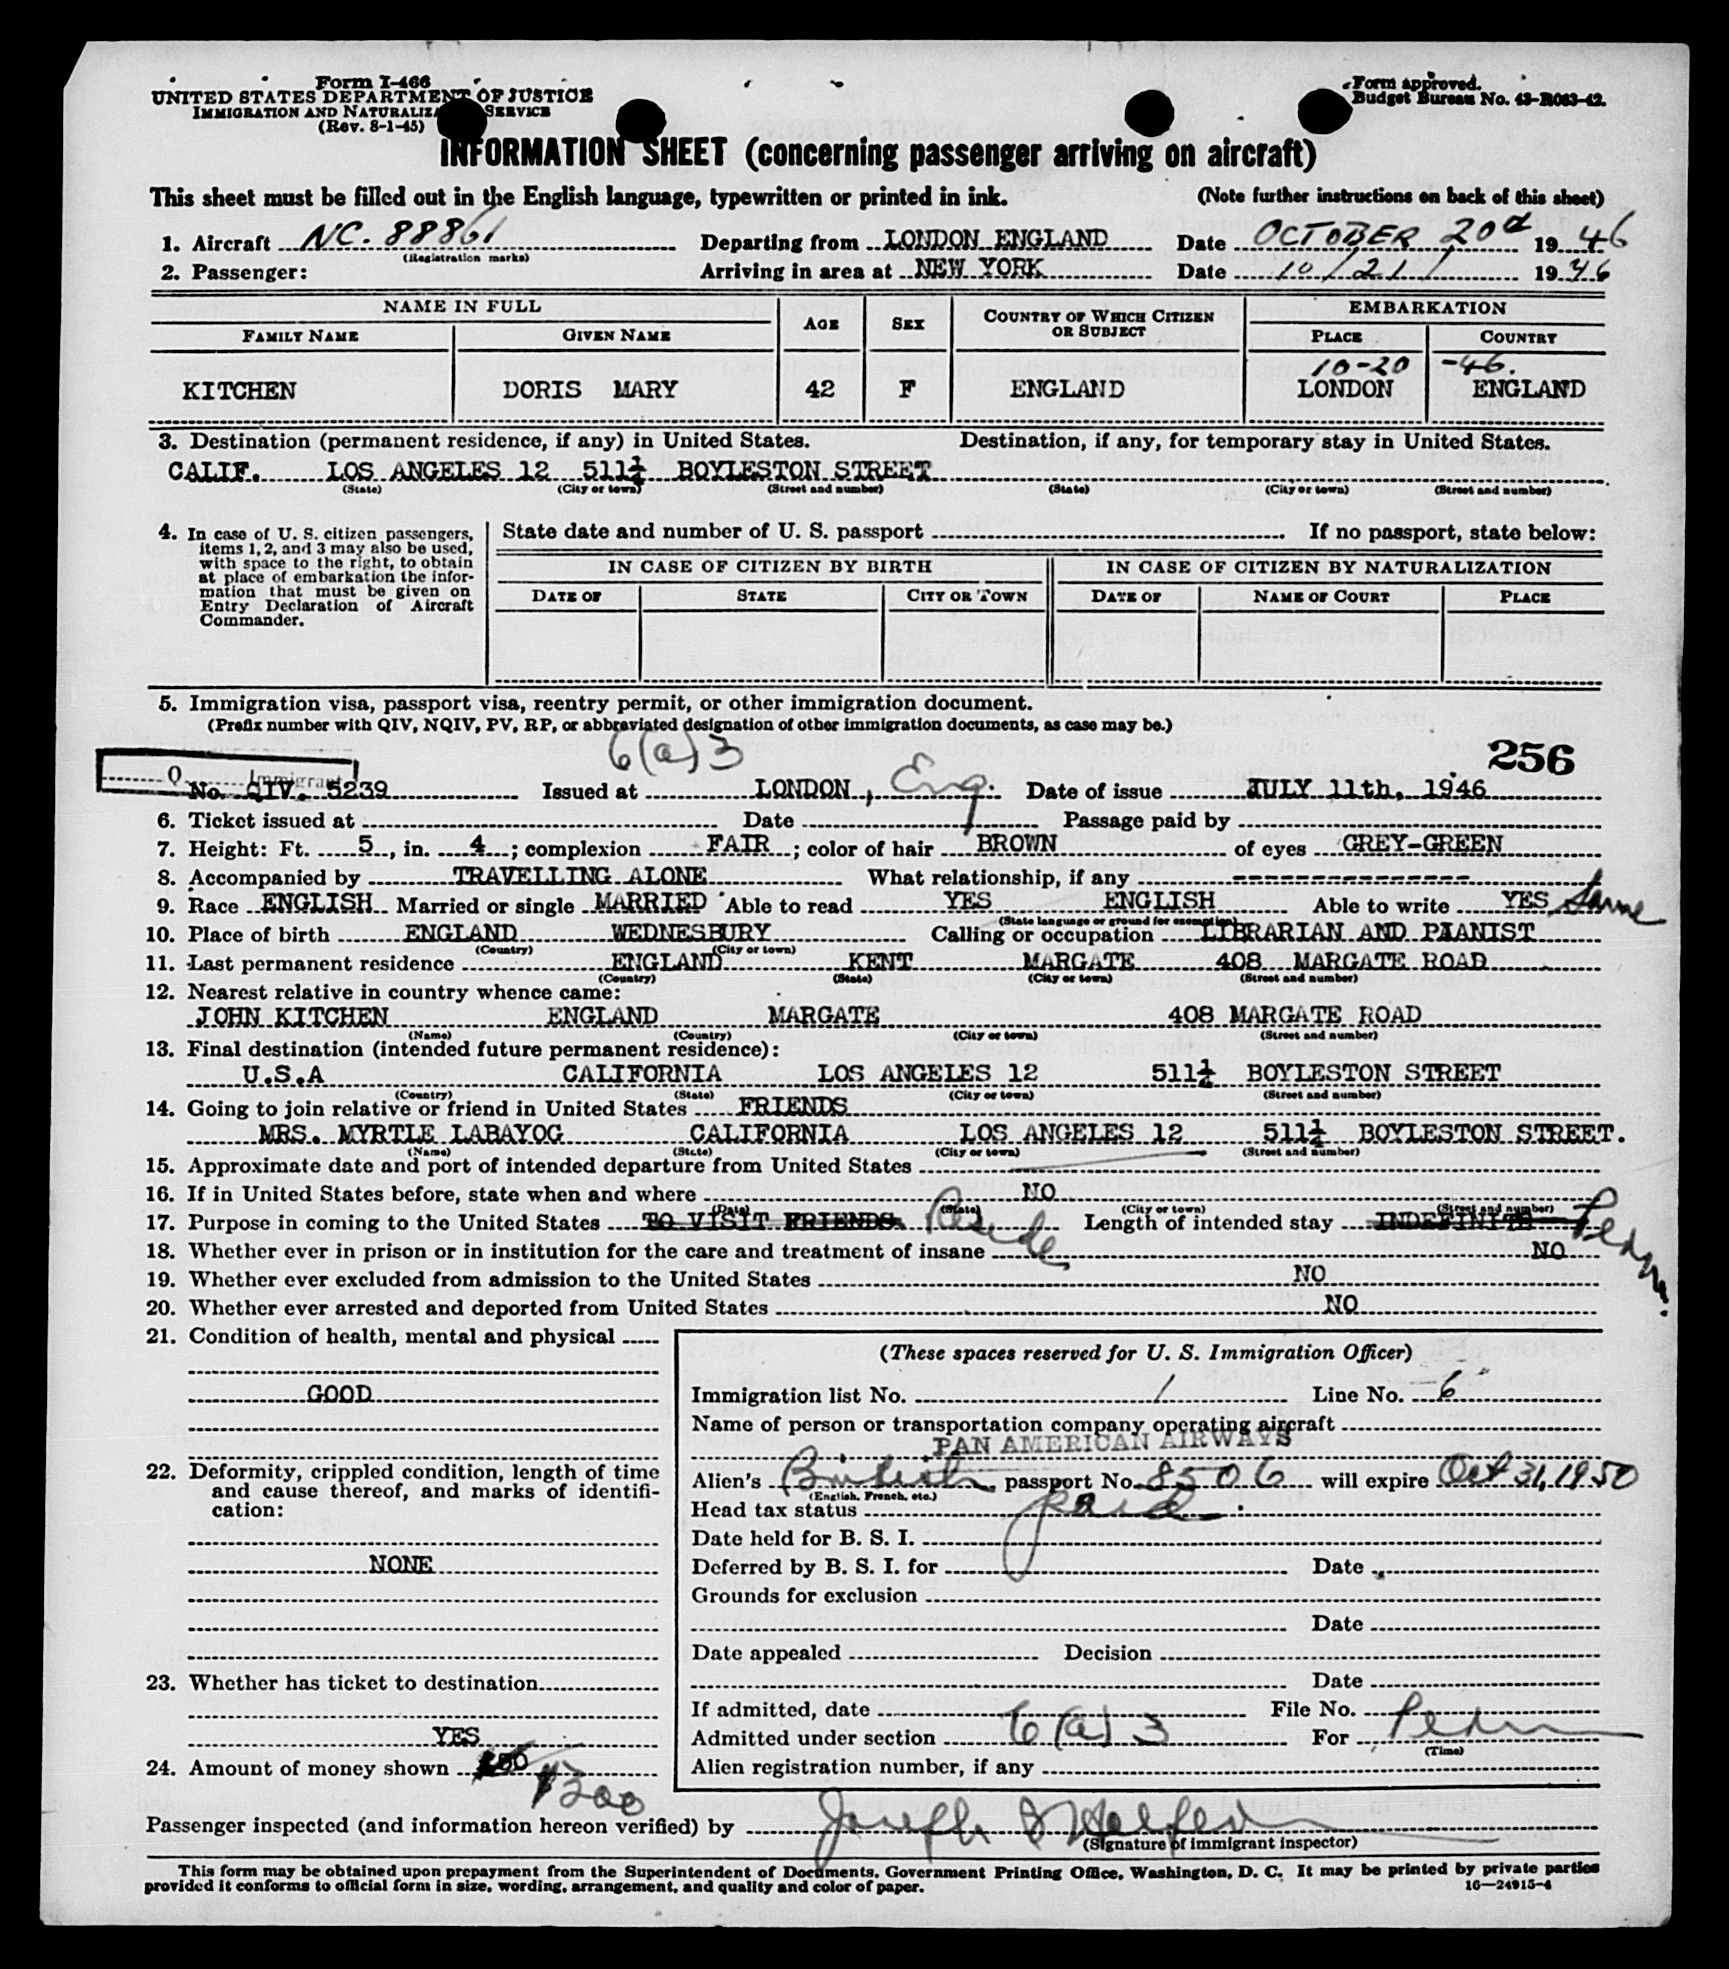 Form I-466
UNITED STATES DEPARTMENT OF JUSTICE
IMMIGRATION AND NATURALIZATION SERVICE
(Rev. 8-1-45)
Form approved.
Budget Bureau No. 43-R063-42.
INFORMATION SHEET (concerning passenger arriving on aircraft)
This sheet must be filled out in the English language, typewritten or printed in ink. (Note further instructions on back of this sheet)
1. Aircraft NC. 88861 Departing from LONDON ENGLAND Date OCTOBER 20 1946
(Registration marks)
2. Passenger: Arriving in area at NEW YORK Date 10/21/ 1946
NAME IN FULL AGE SEX COUNTRY OF WHICH CITIZEN OR SUBJECT EMBARKATION
FAMILY NAME GIVEN NAME PLACE COUNTRY
10-20 -46.
KITCHEN DORIS MARY 42 F ENGLAND LONDON ENGLAND
3. Destination (permanent residence, if any) in United States. Destination, if any, for temporary stay in United States.
CALIF. LOS ANGELES 12 511¼ BOYLESTON STREET
(State) (City or town) (Street and number) (State) (City or town) (Street and number)
4. In case of U. S. citizen passengers, items 1, 2, and 3 may also be used, with space to the right, to obtain at place of embarkation the information that must be given on Entry Declaration of Aircraft Commander.
State date and number of U. S. passport If no passport, state below:
IN CASE OF CITIZEN BY BIRTH IN CASE OF CITIZEN BY NATURALIZATION
DATE OF STATE CITY OR TOWN DATE OF NAME OF COURT PLACE
5. Immigration visa, passport visa, reentry permit, or other immigration document.
(Prefix number with QIV, NQIV, PV, RP, or abbreviated designation of other immigration documents, as case may be.)
6(a)3
256
Q Immigrant
No. QIV. 5239 Issued at LONDON, Eng. Date of issue JULY 11th, 1946
6. Ticket issued at Date Passage paid by
7. Height: Ft. 5, in. 4; complexion FAIR; color of hair BROWN of eyes GREY-GREEN
8. Accompanied by TRAVELLING ALONE What relationship, if any ---------------
9. Race ENGLISH Married or single MARRIED Able to read YES ENGLISH Able to write YES Same
(State language or ground for exemption)
10. Place of birth ENGLAND WEDNESBURY Calling or occupation LIBRARIAN AND PIANIST
(Country) (City or town)
11. Last permanent residence ENGLAND KENT MARGATE 408 MARGATE ROAD
(Country) (State) (City or town) (Street and number)
12. Nearest relative in country whence came:
JOHN KITCHEN ENGLAND MARGATE 408 MARGATE ROAD
(Name) (Country) (City or town) (Street and number)
13. Final destination (intended future permanent residence):
U.S.A CALIFORNIA LOS ANGELES 12 511¼ BOYLESTON STREET
(Country) (State) (City or town) (Street and number)
14. Going to join relative or friend in United States FRIENDS
MRS. MYRTLE LABAYOG CALIFORNIA LOS ANGELES 12 511¼ BOYLESTON STREET.
(Name) (State) (City or town) (Street and number)
15. Approximate date and port of intended departure from United States
16. If in United States before, state when and where NO
(Date) (State) (City or town) (Street and number)
17. Purpose in coming to the United States TO VISIT FRIENDS. Reside Length of intended stay INDEFINITE Perm.
18. Whether ever in prison or in institution for the care and treatment of insane NO
19. Whether ever excluded from admission to the United States NO
20. Whether ever arrested and deported from United States NO
21. Condition of health, mental and physical
GOOD
22. Deformity, crippled condition, length of time and cause thereof, and marks of identification:
NONE
23. Whether has ticket to destination
YES
24. Amount of money shown £50 $200
(These spaces reserved for U. S. Immigration Officer)
Immigration list No. 1 Line No. 6
Name of person or transportation company operating aircraft
PAN AMERICAN AIRWAYS
Alien's British passport No. 8506 will expire Oct 31, 1950
(English, French, etc.)
Head tax status paid
Date held for B. S. I.
Deferred by B. S. I. for Date
Grounds for exclusion
Date
Date appealed Decision
Date
If admitted, date File No.
Admitted under section 6(a)3 For Perm
(Time)
Alien registration number, if any
Passenger inspected (and information hereon verified) by Joseph
(Signature of immigrant inspector)
This form may be obtained upon prepayment from the Superintendent of Documents, Government Printing Office, Washington, D. C. It may be printed by private parties
provided it conforms to official form in size, wording, arrangement, and quality and color of paper.
16—24915-4